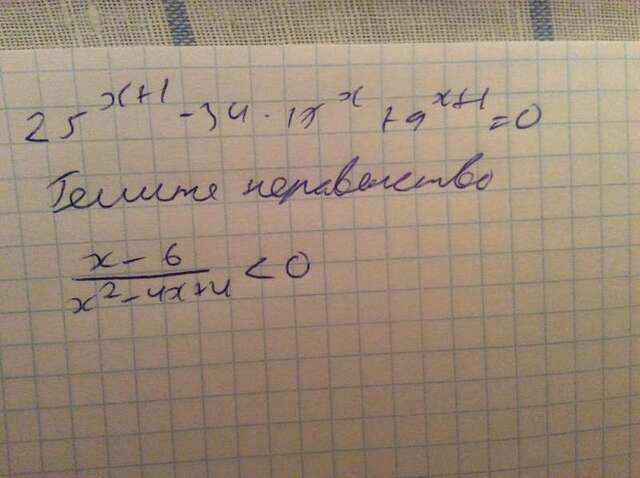 25^{x+1} - 34 · 15^x + 9^{x+1} = 0
Решите неравенство
\frac{x-6}{x^2-4x+4} < 0